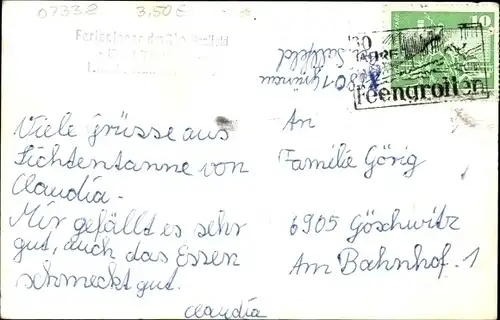 07338 3,50 €
10
Feengrotten
Viele Grüsse aus
Lichtentanne von
Claudia.
Mir gefällt es sehr
gut, auch das Essen
schmeckt gut.
Claudia
An
Familie Görig
6905 Göschwitz
Am Bahnhof 1